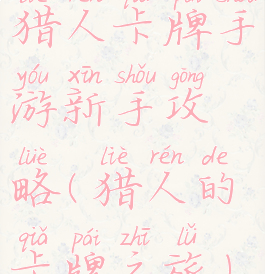 猎人卡牌手
yóu xīn shǒu gōng
游新手攻
lüè liè rén de
略(猎人的
qiǎ pái zhī lǚ
卡牌之旅)